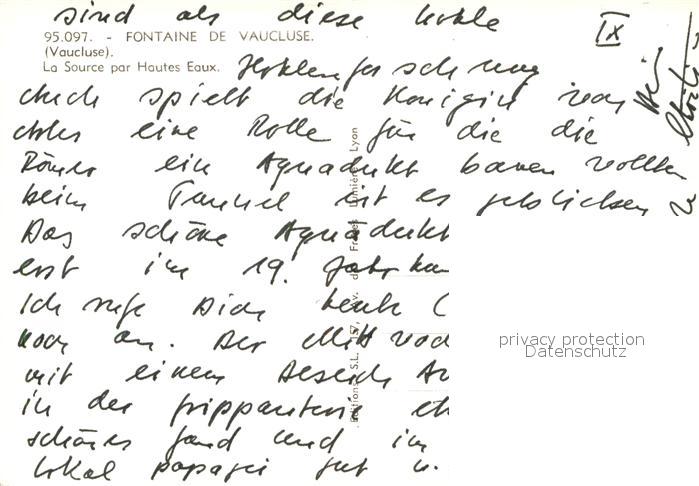 sind als diese Höhle
IX
95.097. - FONTAINE DE VAUCLUSE.
(Vaucluse).
La Source par Hautes Eaux.
Höhlenforschung
Auch spielt die Königin von
eine Rolle für die die
Römer ein Aquädukt bauen wollten
beim Tunnel ist es geblieben
Das schöne Aquädukt
erst im 19. Jahrhun
Ich rufe Dich heute
noch an. Der Mittwoch
mit einem Besuch
in der
schönes fand und im
Lokal papagei gut u.
Editions S.L. 157, Av. des Frères Lumière, Lyon
privacy protection
Datenschutz